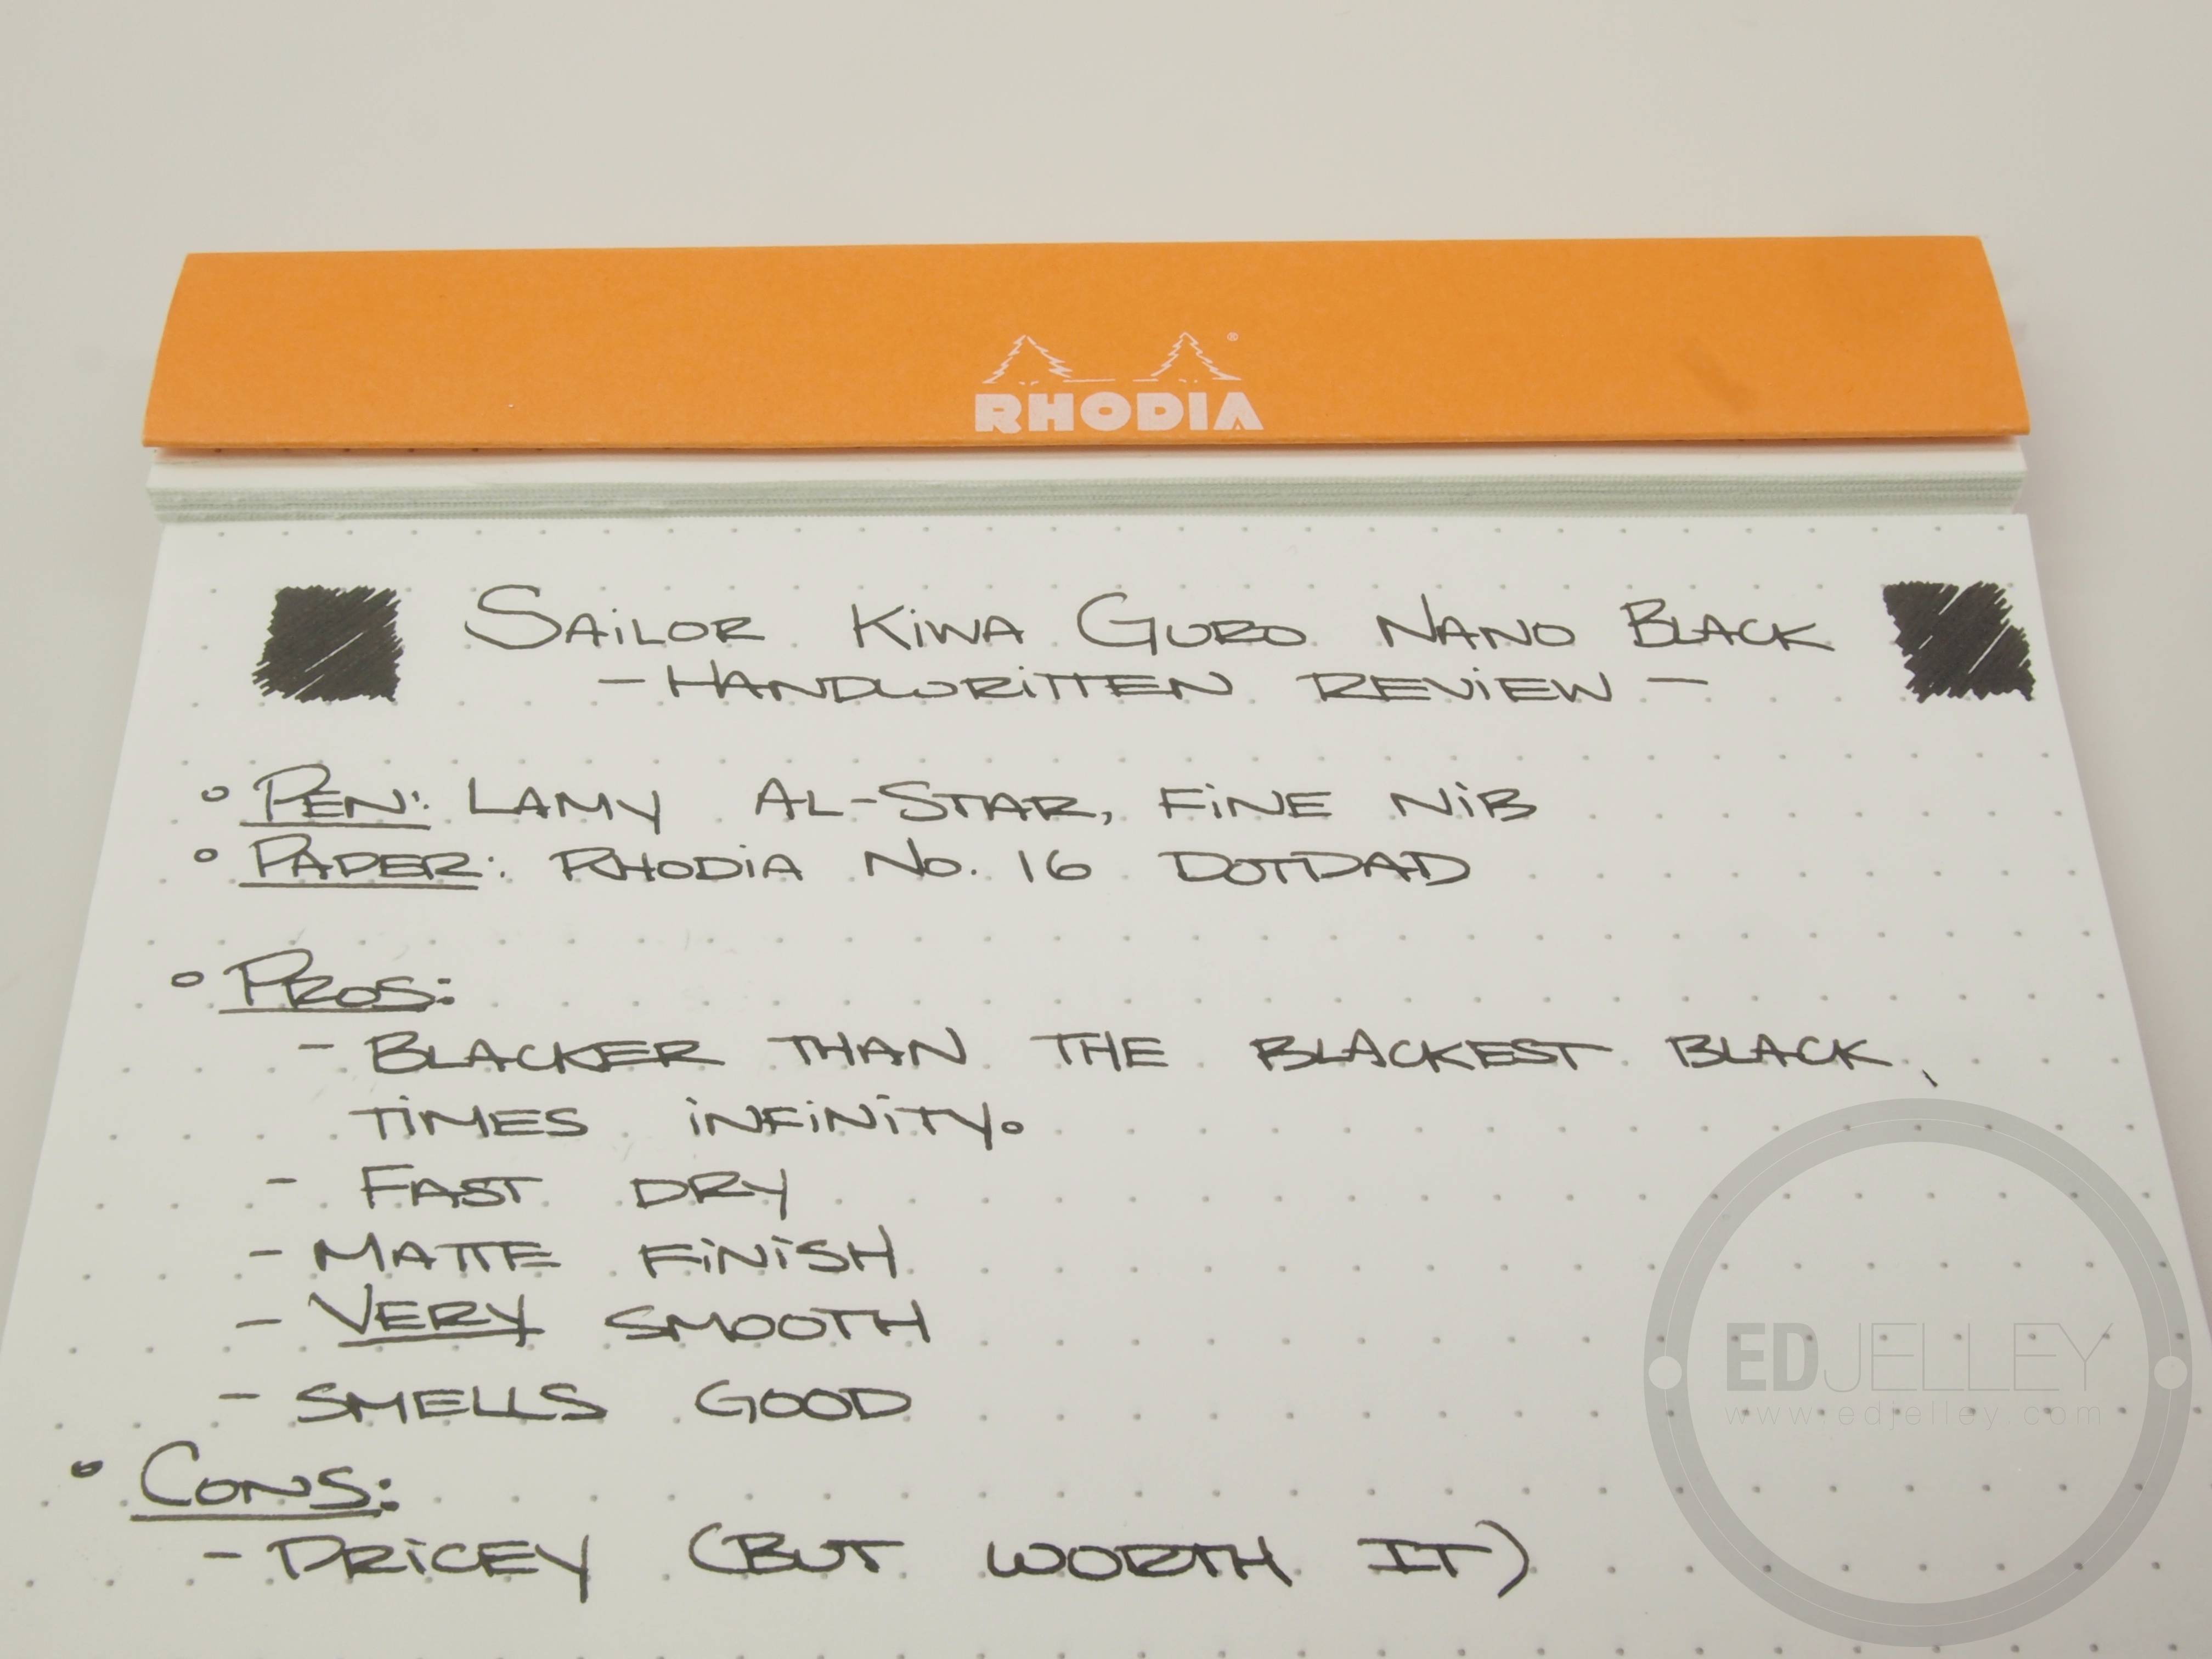 RHODIA
SAiLOR KiWA GURO NANO BLACK
- HANDWRiTTEN REViEW -
PEN: LAMY AL-STAR, FiNE NiB
PAPER: RHODiA No. 16 DOTPAD
PROS:
- BLACKER THAN THE BLACKEST BLACK,
TiMES iNFiNiTY.
- FAST DRY
- MATTE FiNiSH
- VERY SMOOTH
- SMELLS GOOD
CONS:
- PRiCEY (BUT WORTH IT)
EDJELLEY
www.edjelley.com